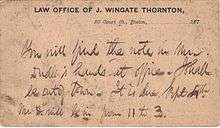 LAW OFFICE OF J. WINGATE THORNTON,
20 Court St., Boston, 187
You will find the note in Mr.
hands at office. I shall
be out town. It is due Sept 4th
Mr. will be in from 11 to 3.